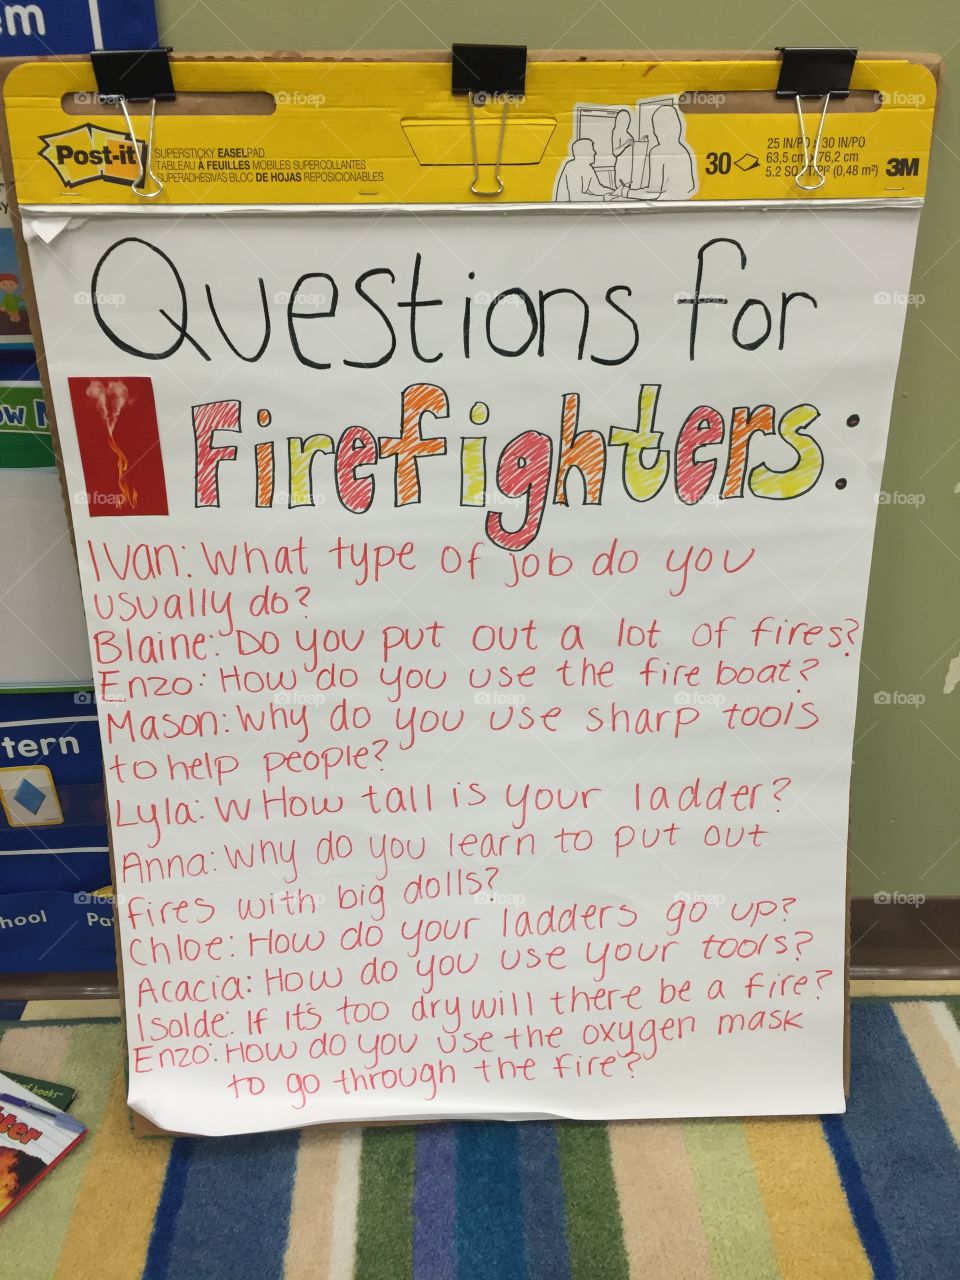 em
Post-it
SUPERSTICKY EASELPAD
TABLEAU À FEUILLES MOBILES SUPERCOLLANTES
SUPERADHESIVAS BLOC DE HOJAS REPOSICIONABLES
30
25 IN/PO x 30 IN/PO
63,5 cm x 76,2 cm
5.2 SQ FT/PI² (0,48 m²)
3M
Questions for
Firefighters:
Ivan: What type of job do you
usually do?
Blaine: Do you put out a lot of fires?
Enzo: How do you use the fire boat?
Mason: Why do you use sharp tools
to help people?
Lyla: W How tall is your ladder?
Anna: Why do you learn to put out
fires with big dolls?
Chloe: How do your ladders go up?
Acacia: How do you use your tools?
Isolde: If it's too dry will there be a fire?
Enzo: How do you use the oxygen mask
to go through the fire?
ow
tern
hool
Pa
of books
hter
foap